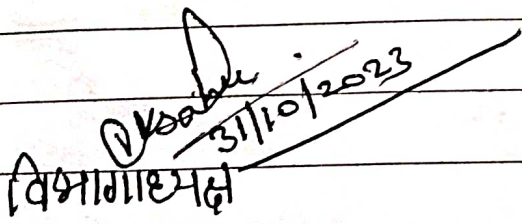 31/10/2023
विभागाध्यक्ष